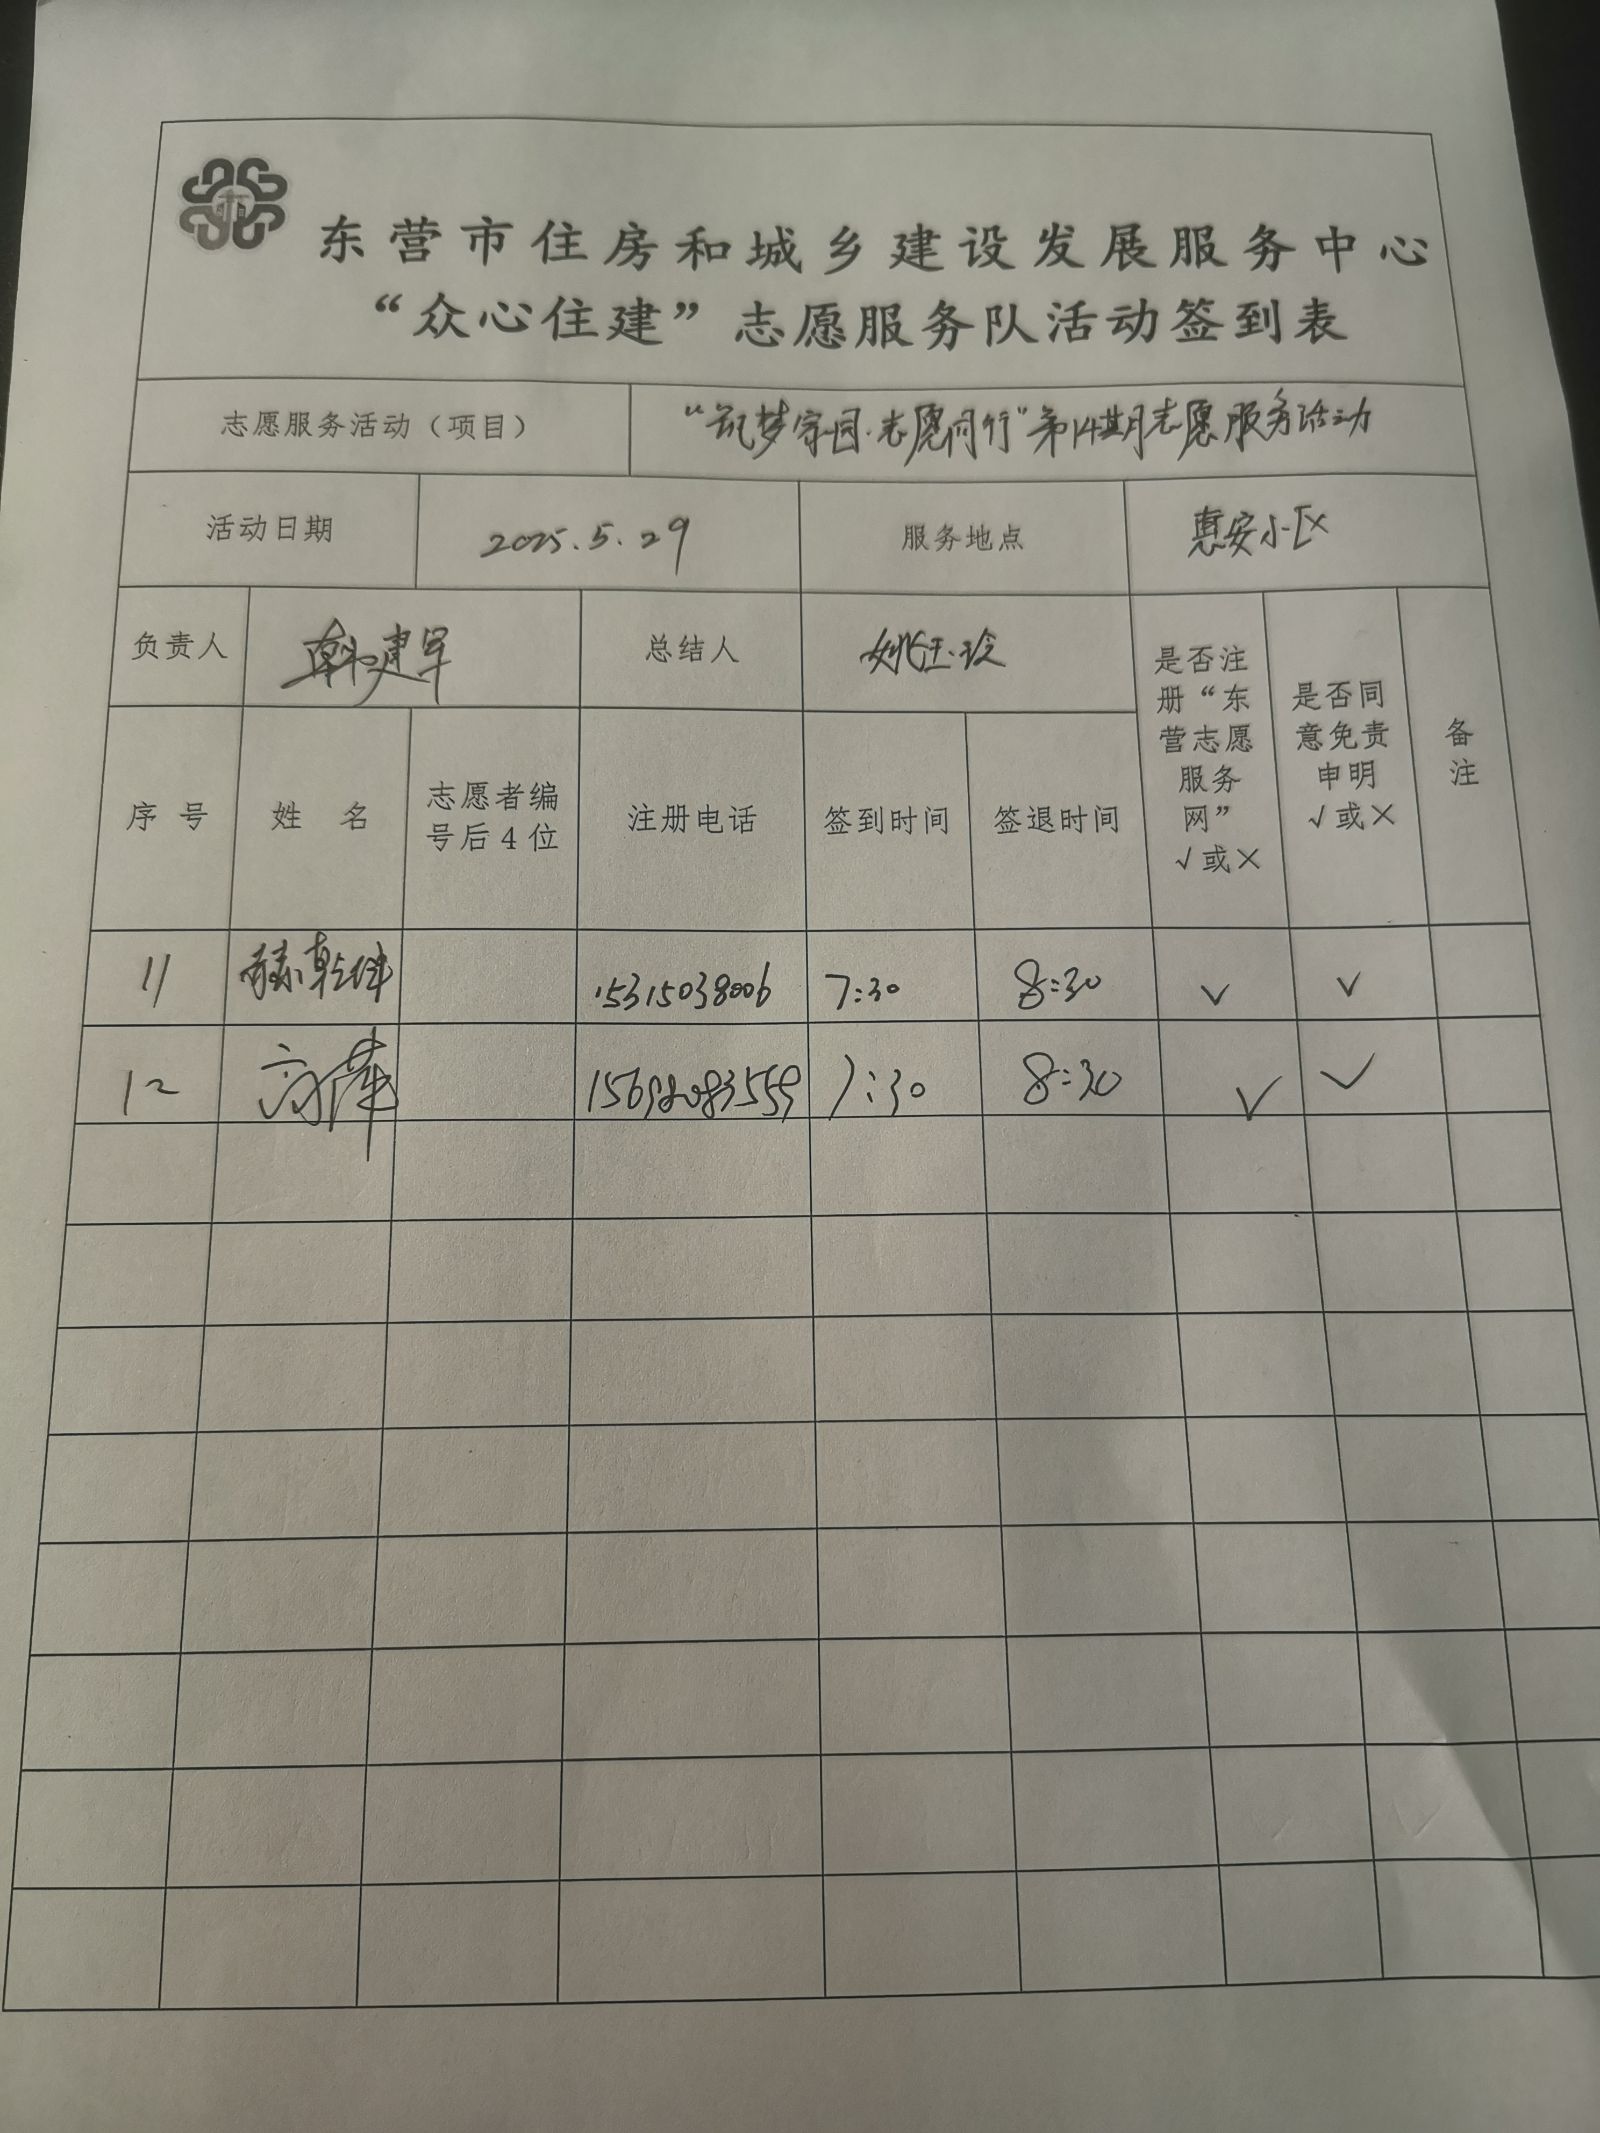 东营市住房和城乡建设发展服务中心
“众心住建”志愿服务队活动签到表
志愿服务活动（项目） “筑梦家园·志愿同行”第14期志愿服务活动
活动日期 2025.5.29 服务地点 惠安小区
负责人 韩建军 总结人 姚玉玲
序号 姓名 志愿者编号后4位 注册电话 签到时间 签退时间 是否注册“东营志愿服务网”√或× 是否同意免责申明√或× 备注
11 乾坤 15315038006 7:30 8:30 √ √
12 15698083559 7:30 8:30 √ √